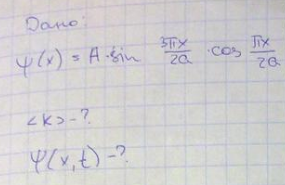 Дано:
ψ(x) = A·sin 3πx/2a · cos πx/2a
<k> - ?
ψ(x,t) - ?